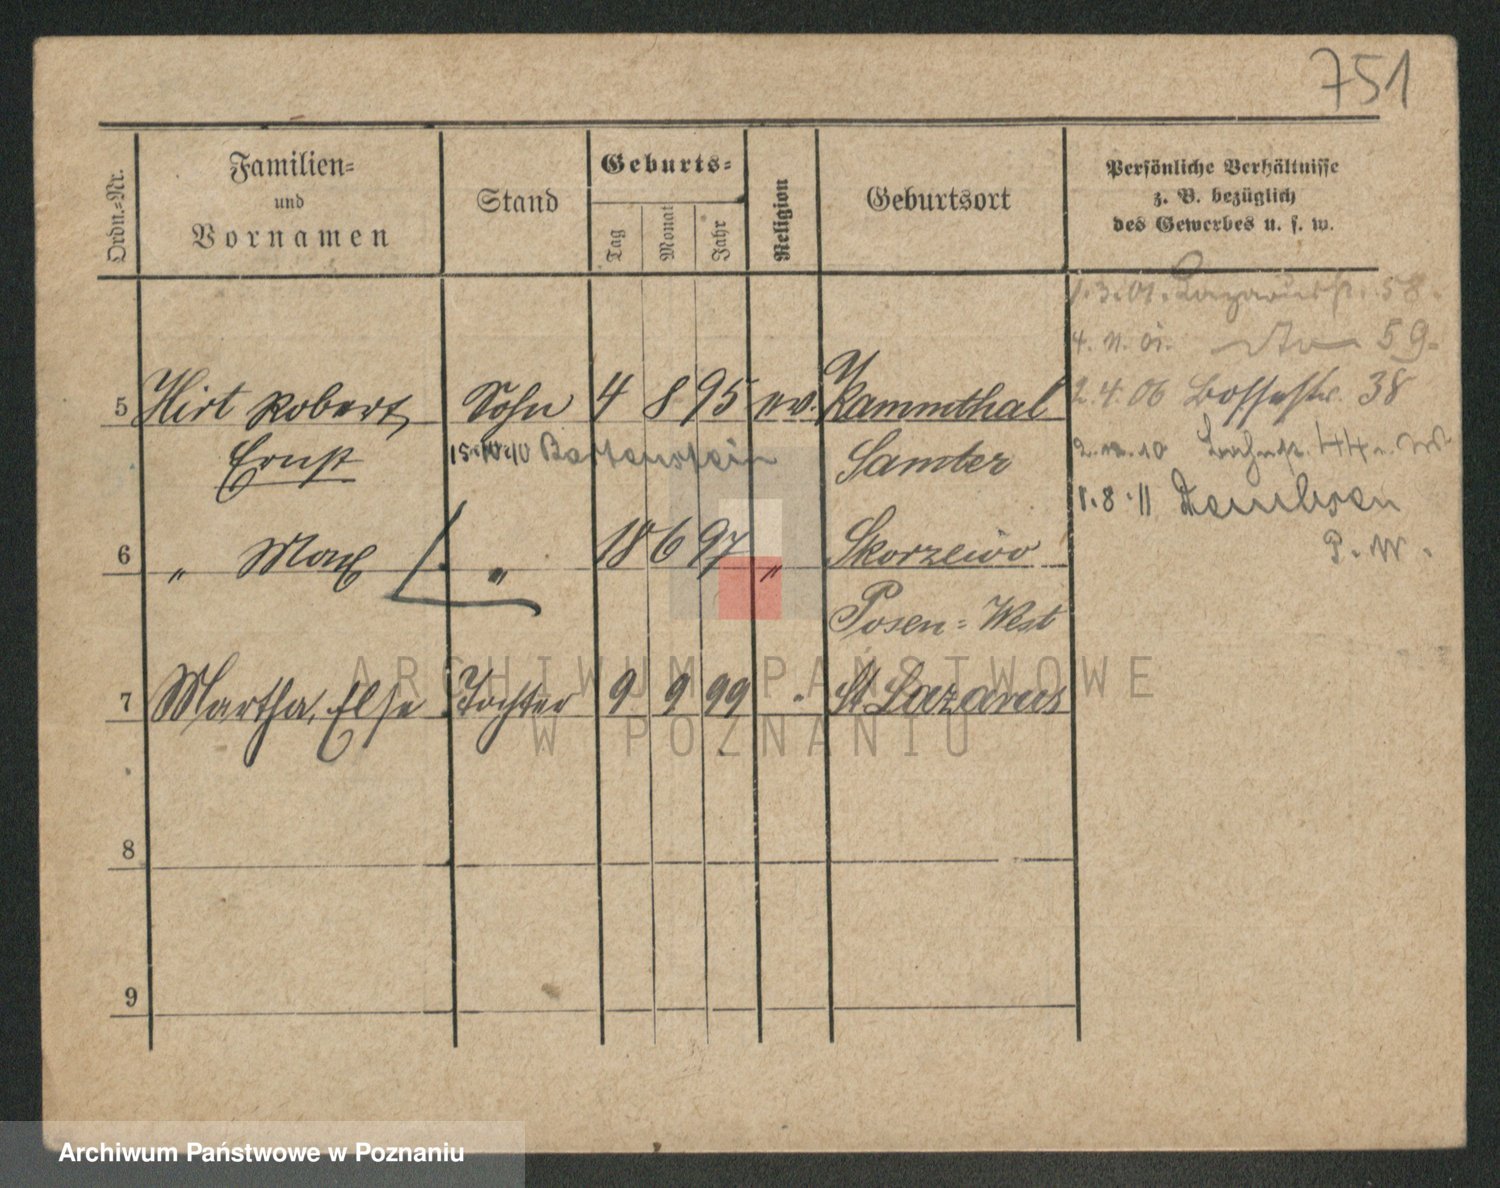 751
Ordn.-Nr.
Familien-
und
Vornamen
Stand
Geburts-
Tag
Monat
Jahr
Religion
Geburtsort
Persönliche Verhältnisse
z. B. bezüglich
des Gewerbes u. s. w.
1.3.01. Lazarusstr. 58.
4. 11. 01. 59.
5 Hirt Robert Sohn 4 8 95 ev. Kammthal
2.4.06 38
Ernst 15.10.10 Bartenstein Samter
10 44
1.8.11
6 " Max " 18 6 97 " Skorzewo
P. W.
Posen-West
7 Martha, Else Tochter 9 9 99 " St Lazarus
8
9
ARCHIWUM PAŃSTWOWE
W POZNANIU
Archiwum Państwowe w Poznaniu